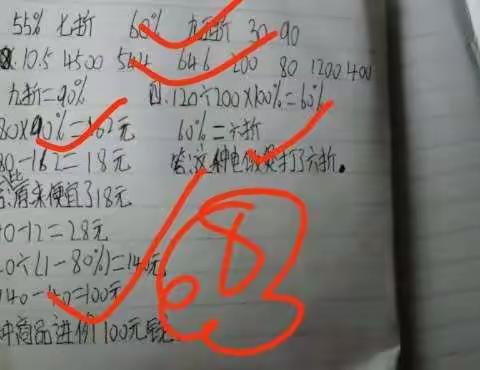 55% 七折 60% 九五折 30.90
10.5 4500 544 646 200 80 1200.400
九折=90%
1.120÷200×100%=60%
80×90%=162元
60%=六折
80-162=18元
答:这种电饭煲打了六折。
原来便宜了18元
40-12=28元
÷(1-80%)=140元
140-40=100元
商品进价100元
8